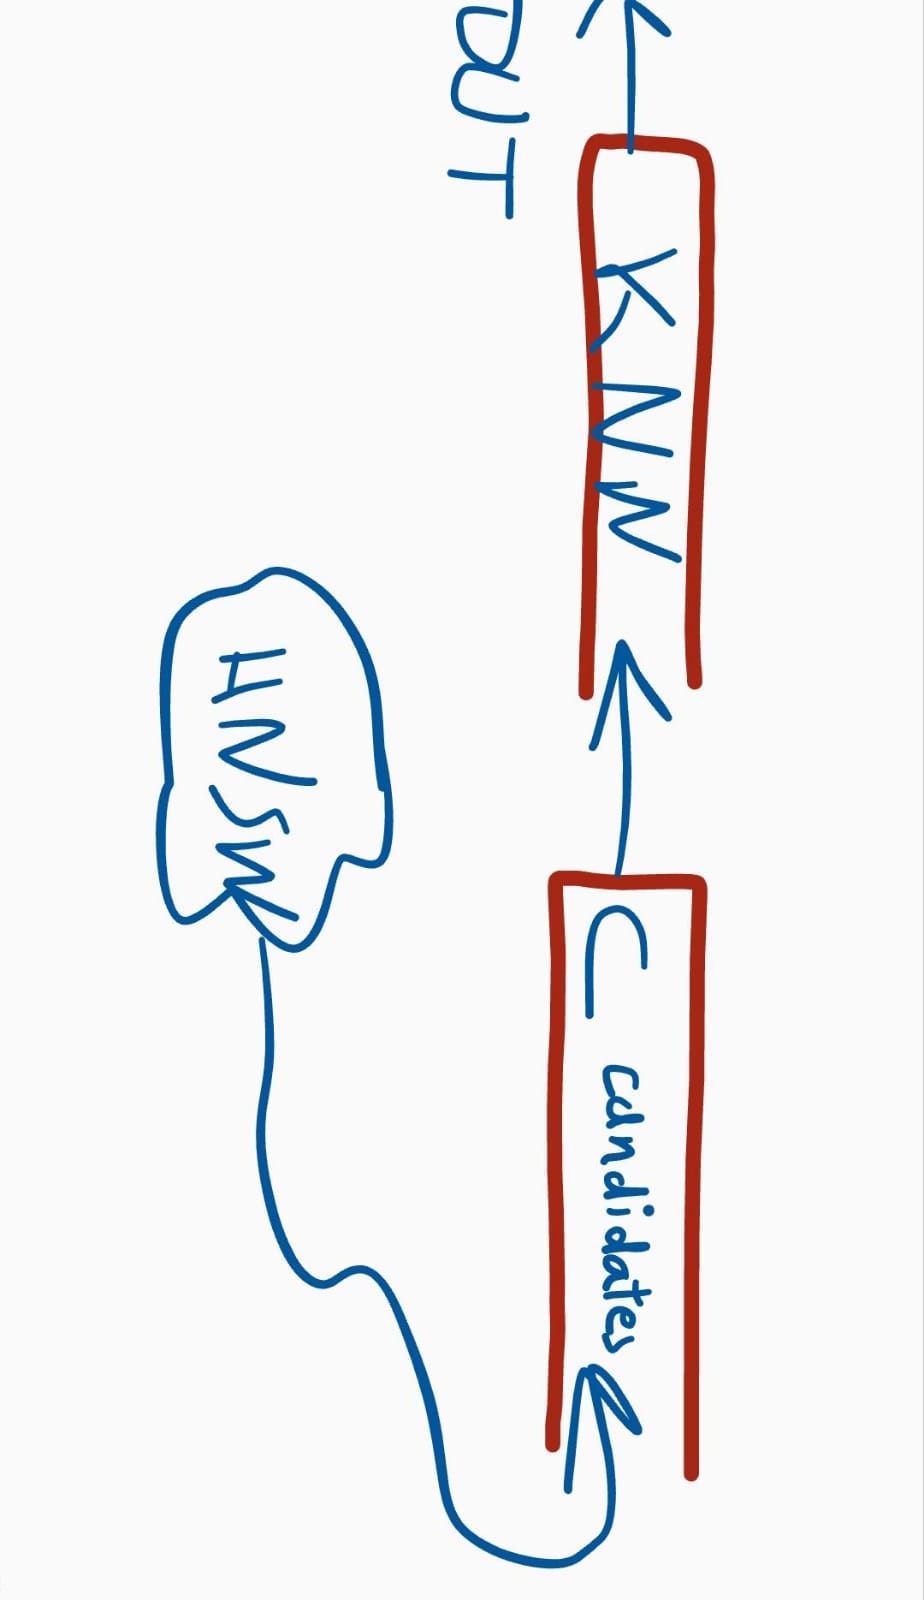 KNN
C candidates
OUT
HNSW